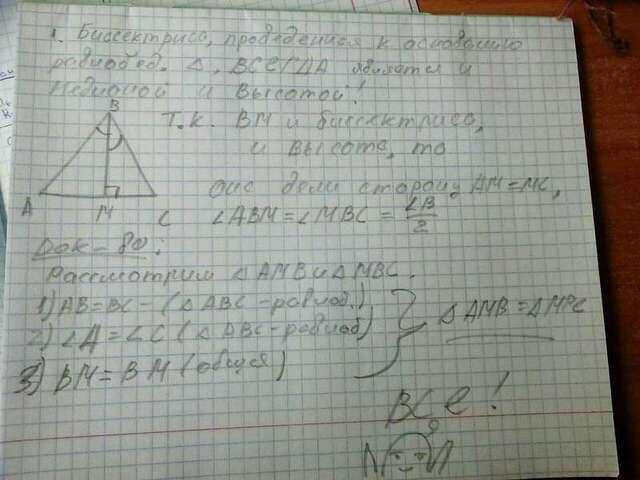 1. Биссектриса, проведенная к основанию
равнобед. △, ВСЕГДА является и
медианой и высотой!
B
Т.к. BM и биссектриса,
и высота, то
она дели сторону AM=MC,
A M C
∠ABM = ∠MBC = ∠B/2
Док-во:
Рассмотрим △AMB и △MBC.
1) AB=BC - (△ABC - равнод.)
2) ∠A = ∠C (△ABC - равнод)
3) BM = BM (общая)
△AMB = △MBC
ВСе!